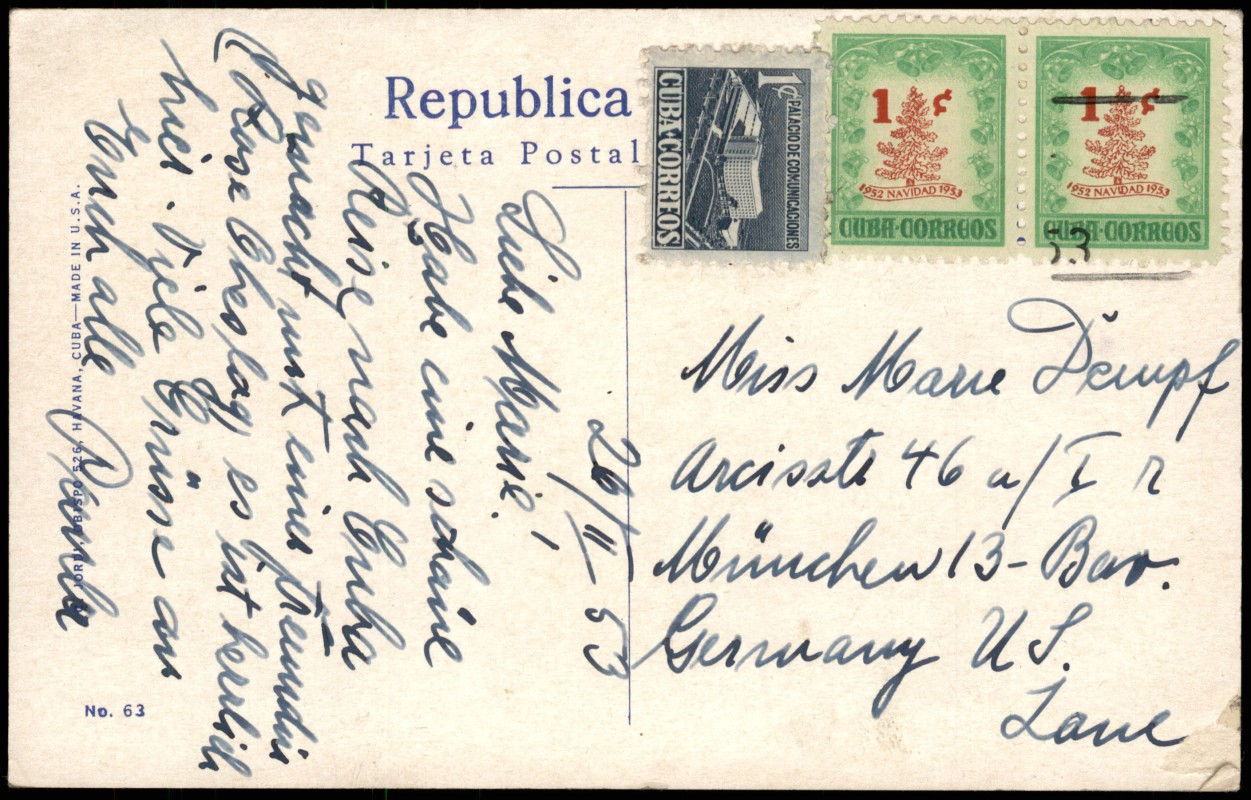 Republica
Tarjeta Postal
1¢
PALACIO DE COMUNICACIONES
CUBA·CORREOS
1 ¢
1952 NAVIDAD 1953
CUBA·CORREOS
1 ¢
1952 NAVIDAD 1953
CUBA·CORREOS
53
26/11–53
Liebe Marie!
Habe eine schöne
Reise nach Cuba
gemacht mit einer Freundin
es ist herrlich
hier. Viele Grüsse an
Euch alle
Miss Marie Dempf
Arcisstr 46 a/I r
München 13 – Bav.
Germany U.S.
Zone
JORDI, OBISPO 526, HAVANA, CUBA—MADE IN U.S.A.
No. 63